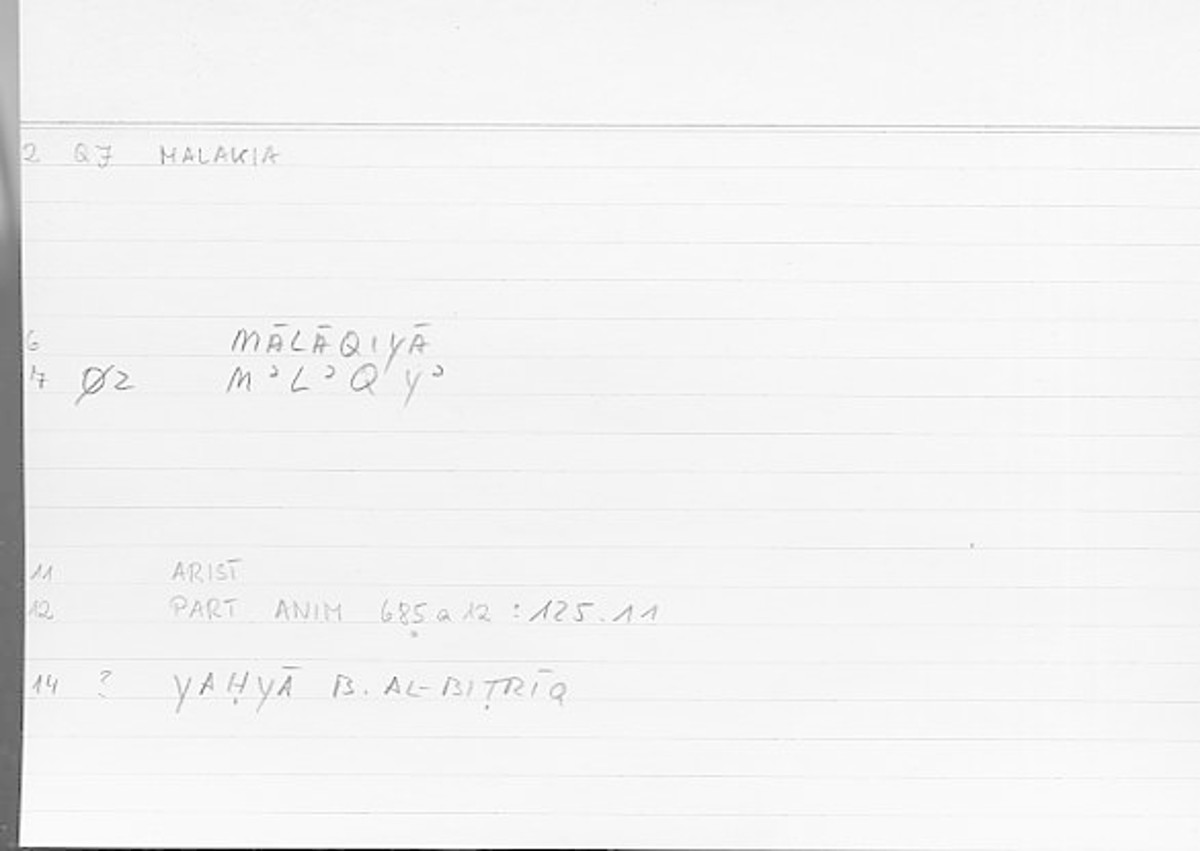 2 Q7 MALAKIA
6 MĀLĀQIYĀ
7 Ø2 MʾLʾQYʾ
11 ARIST
12 PART ANIM 685a12 : 125.11
14 ? YAḤYĀ B. AL-BIṬRĪQ